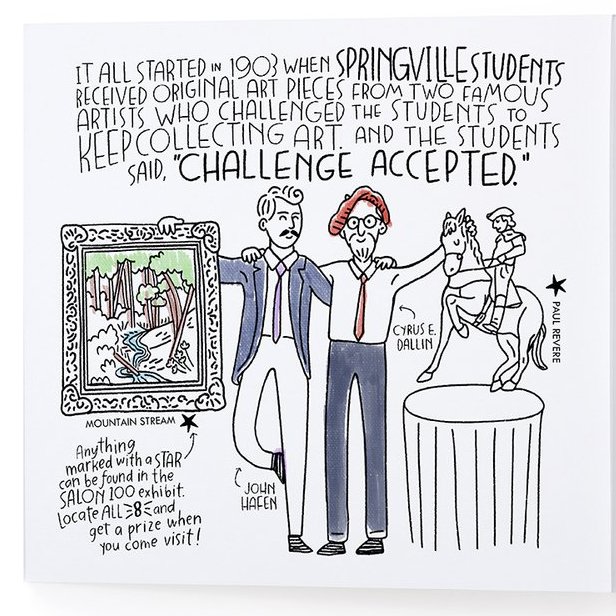 IT ALL STARTED IN 1903 WHEN SPRINGVILLE STUDENTS
RECEIVED ORIGINAL ART PIECES FROM TWO FAMOUS
ARTISTS WHO CHALLENGED THE STUDENTS TO
KEEP COLLECTING ART. AND THE STUDENTS
SAID, "CHALLENGE ACCEPTED."
MOUNTAIN STREAM
Anything
marked with a STAR
can be found in the
SALON 100 exhibit.
Locate ALL 8 and
get a prize when
you come visit!
JOHN
HAFEN
CYRUS E.
DALLIN
PAUL REVERE